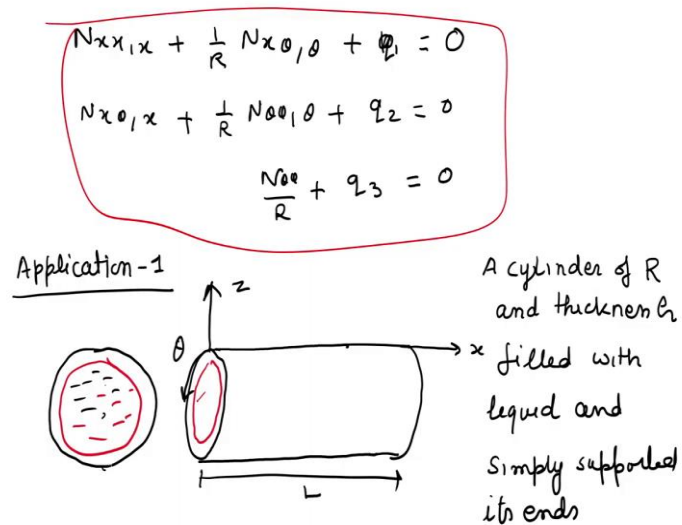 Nxx,x + 1/R Nxθ,θ + q1 = 0
Nxθ,x + 1/R Nθθ,θ + q2 = 0
Nθθ/R + q3 = 0
Application-1
z
θ
x
L
A cylinder of R
and thickness h
filled with
liquid and
simply supported
its ends